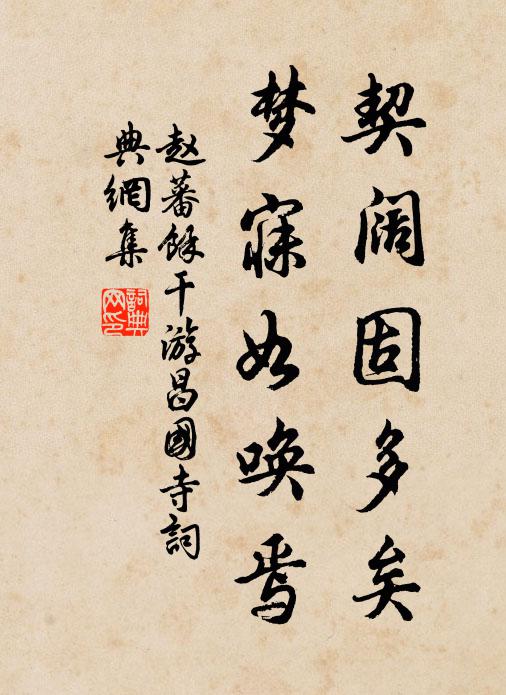 契阔固多矣
梦寐如唤焉
赵蕃馀干游昌國寺詞
典網集
詞典
网印